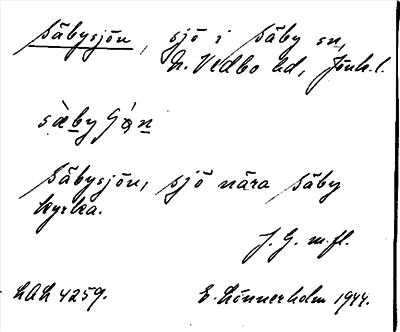 Säbysjön, sjö i Säby sn,
N. Vedbo hd, Jönk. l.
Säbysjön, sjö nära Säby
kyrka.
J. G. m. fl.
LAL 4259. E. Lönnerholm 1944.